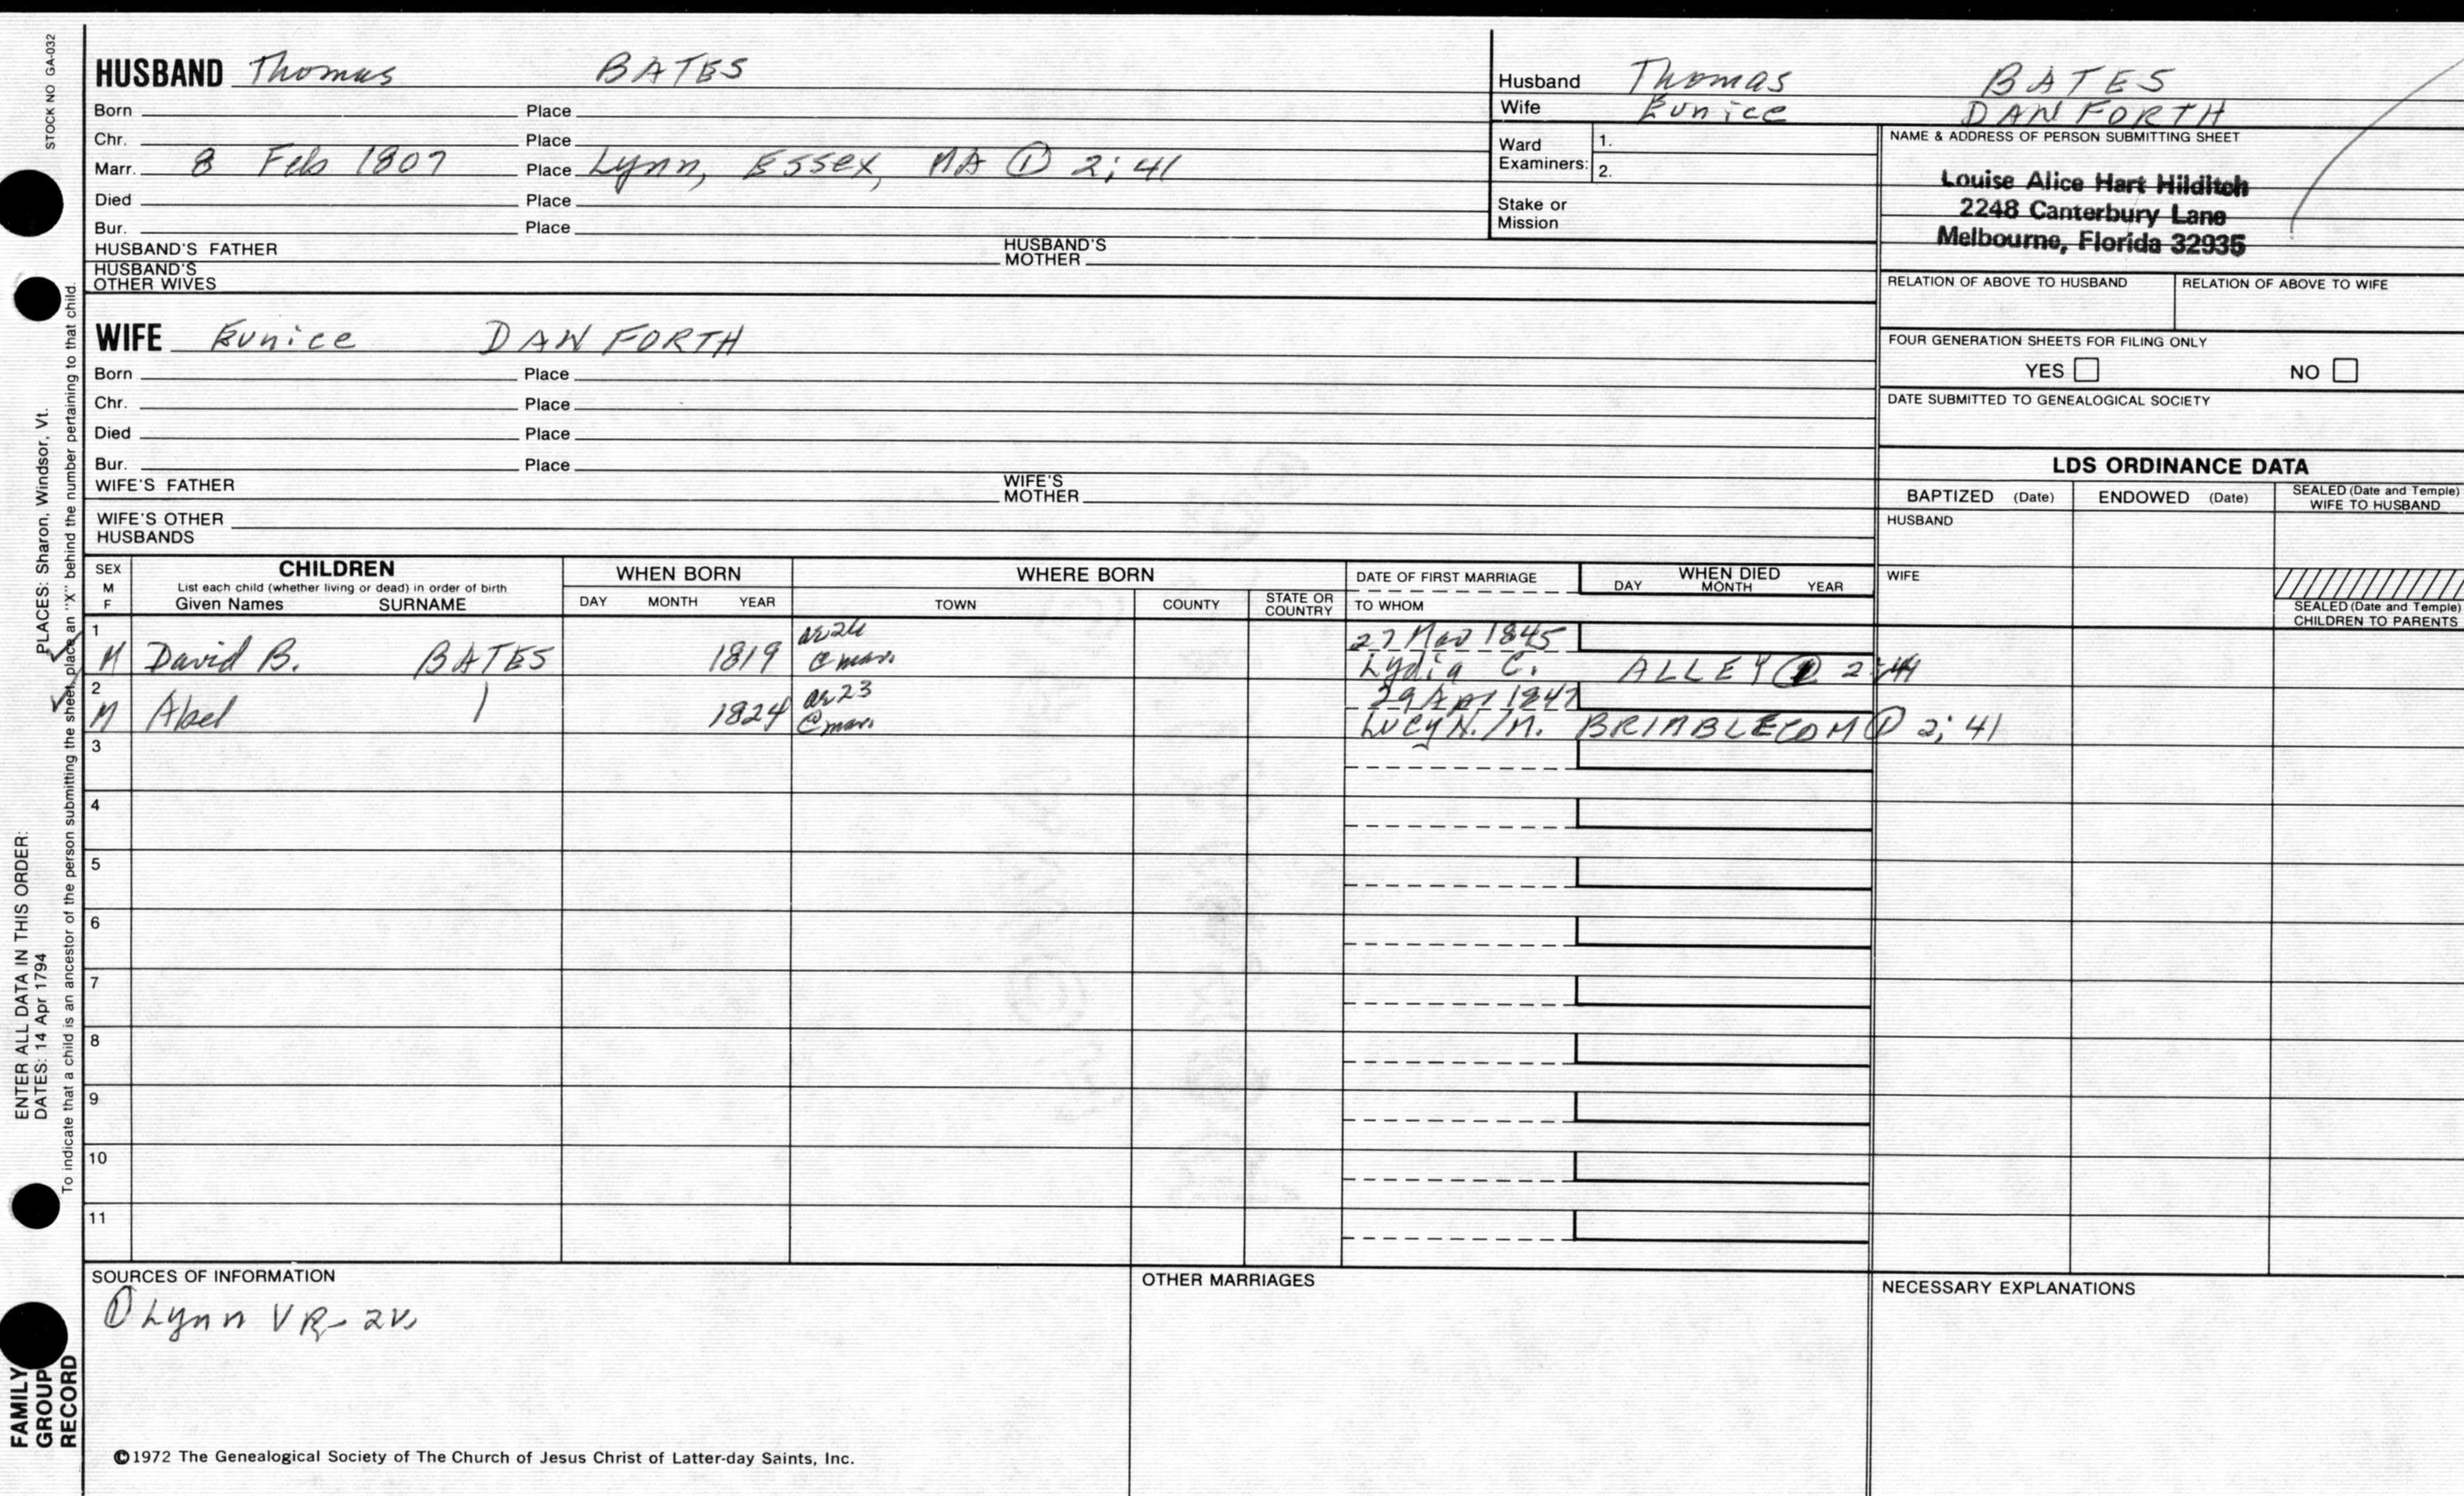 STOCK NO GA-032
HUSBAND Thomas BATES
Born Place
Chr. Place
Marr. 8 Feb 1807 Place Lynn, Essex, MA ① 2; 41
Died Place
Bur. Place
HUSBAND'S FATHER HUSBAND'S MOTHER
HUSBAND'S OTHER WIVES
Husband Thomas BATES
Wife Eunice DANFORTH
Ward Examiners: 1.
2.
Stake or Mission
NAME & ADDRESS OF PERSON SUBMITTING SHEET
Louise Alice Hart Hilditch
2248 Canterbury Lane
Melbourne, Florida 32935
RELATION OF ABOVE TO HUSBAND RELATION OF ABOVE TO WIFE
FOUR GENERATION SHEETS FOR FILING ONLY
YES NO
DATE SUBMITTED TO GENEALOGICAL SOCIETY
WIFE Eunice DANFORTH
Born Place
Chr. Place
Died Place
Bur. Place
WIFE'S FATHER WIFE'S MOTHER
WIFE'S OTHER HUSBANDS
LDS ORDINANCE DATA
BAPTIZED (Date) ENDOWED (Date) SEALED (Date and Temple) WIFE TO HUSBAND
HUSBAND
WIFE
SEALED (Date and Temple) CHILDREN TO PARENTS
SEX M F
CHILDREN
List each child (whether living or dead) in order of birth
Given Names SURNAME
WHEN BORN
DAY MONTH YEAR
WHERE BORN
TOWN COUNTY STATE OR COUNTRY
DATE OF FIRST MARRIAGE
TO WHOM
WHEN DIED
DAY MONTH YEAR
1 27 1845
M David B. BATES 1819 @ mar. Lydia C. ALLEY ① 2;41
2 23 29 Apr 1847
M Abel 1824 @ mar. Lucy N./M. BRIMBLECOM ① 2; 41
3
4
5
6
7
8
9
10
11
SOURCES OF INFORMATION
① Lynn VR- 2v.
OTHER MARRIAGES
NECESSARY EXPLANATIONS
©1972 The Genealogical Society of The Church of Jesus Christ of Latter-day Saints, Inc.
ENTER ALL DATA IN THIS ORDER:
DATES: 14 Apr 1794 PLACES: Sharon, Windsor, Vt.
To indicate that a child is an ancestor of the person submitting the sheet, place an "X" behind the number pertaining to that child.
FAMILY GROUP RECORD